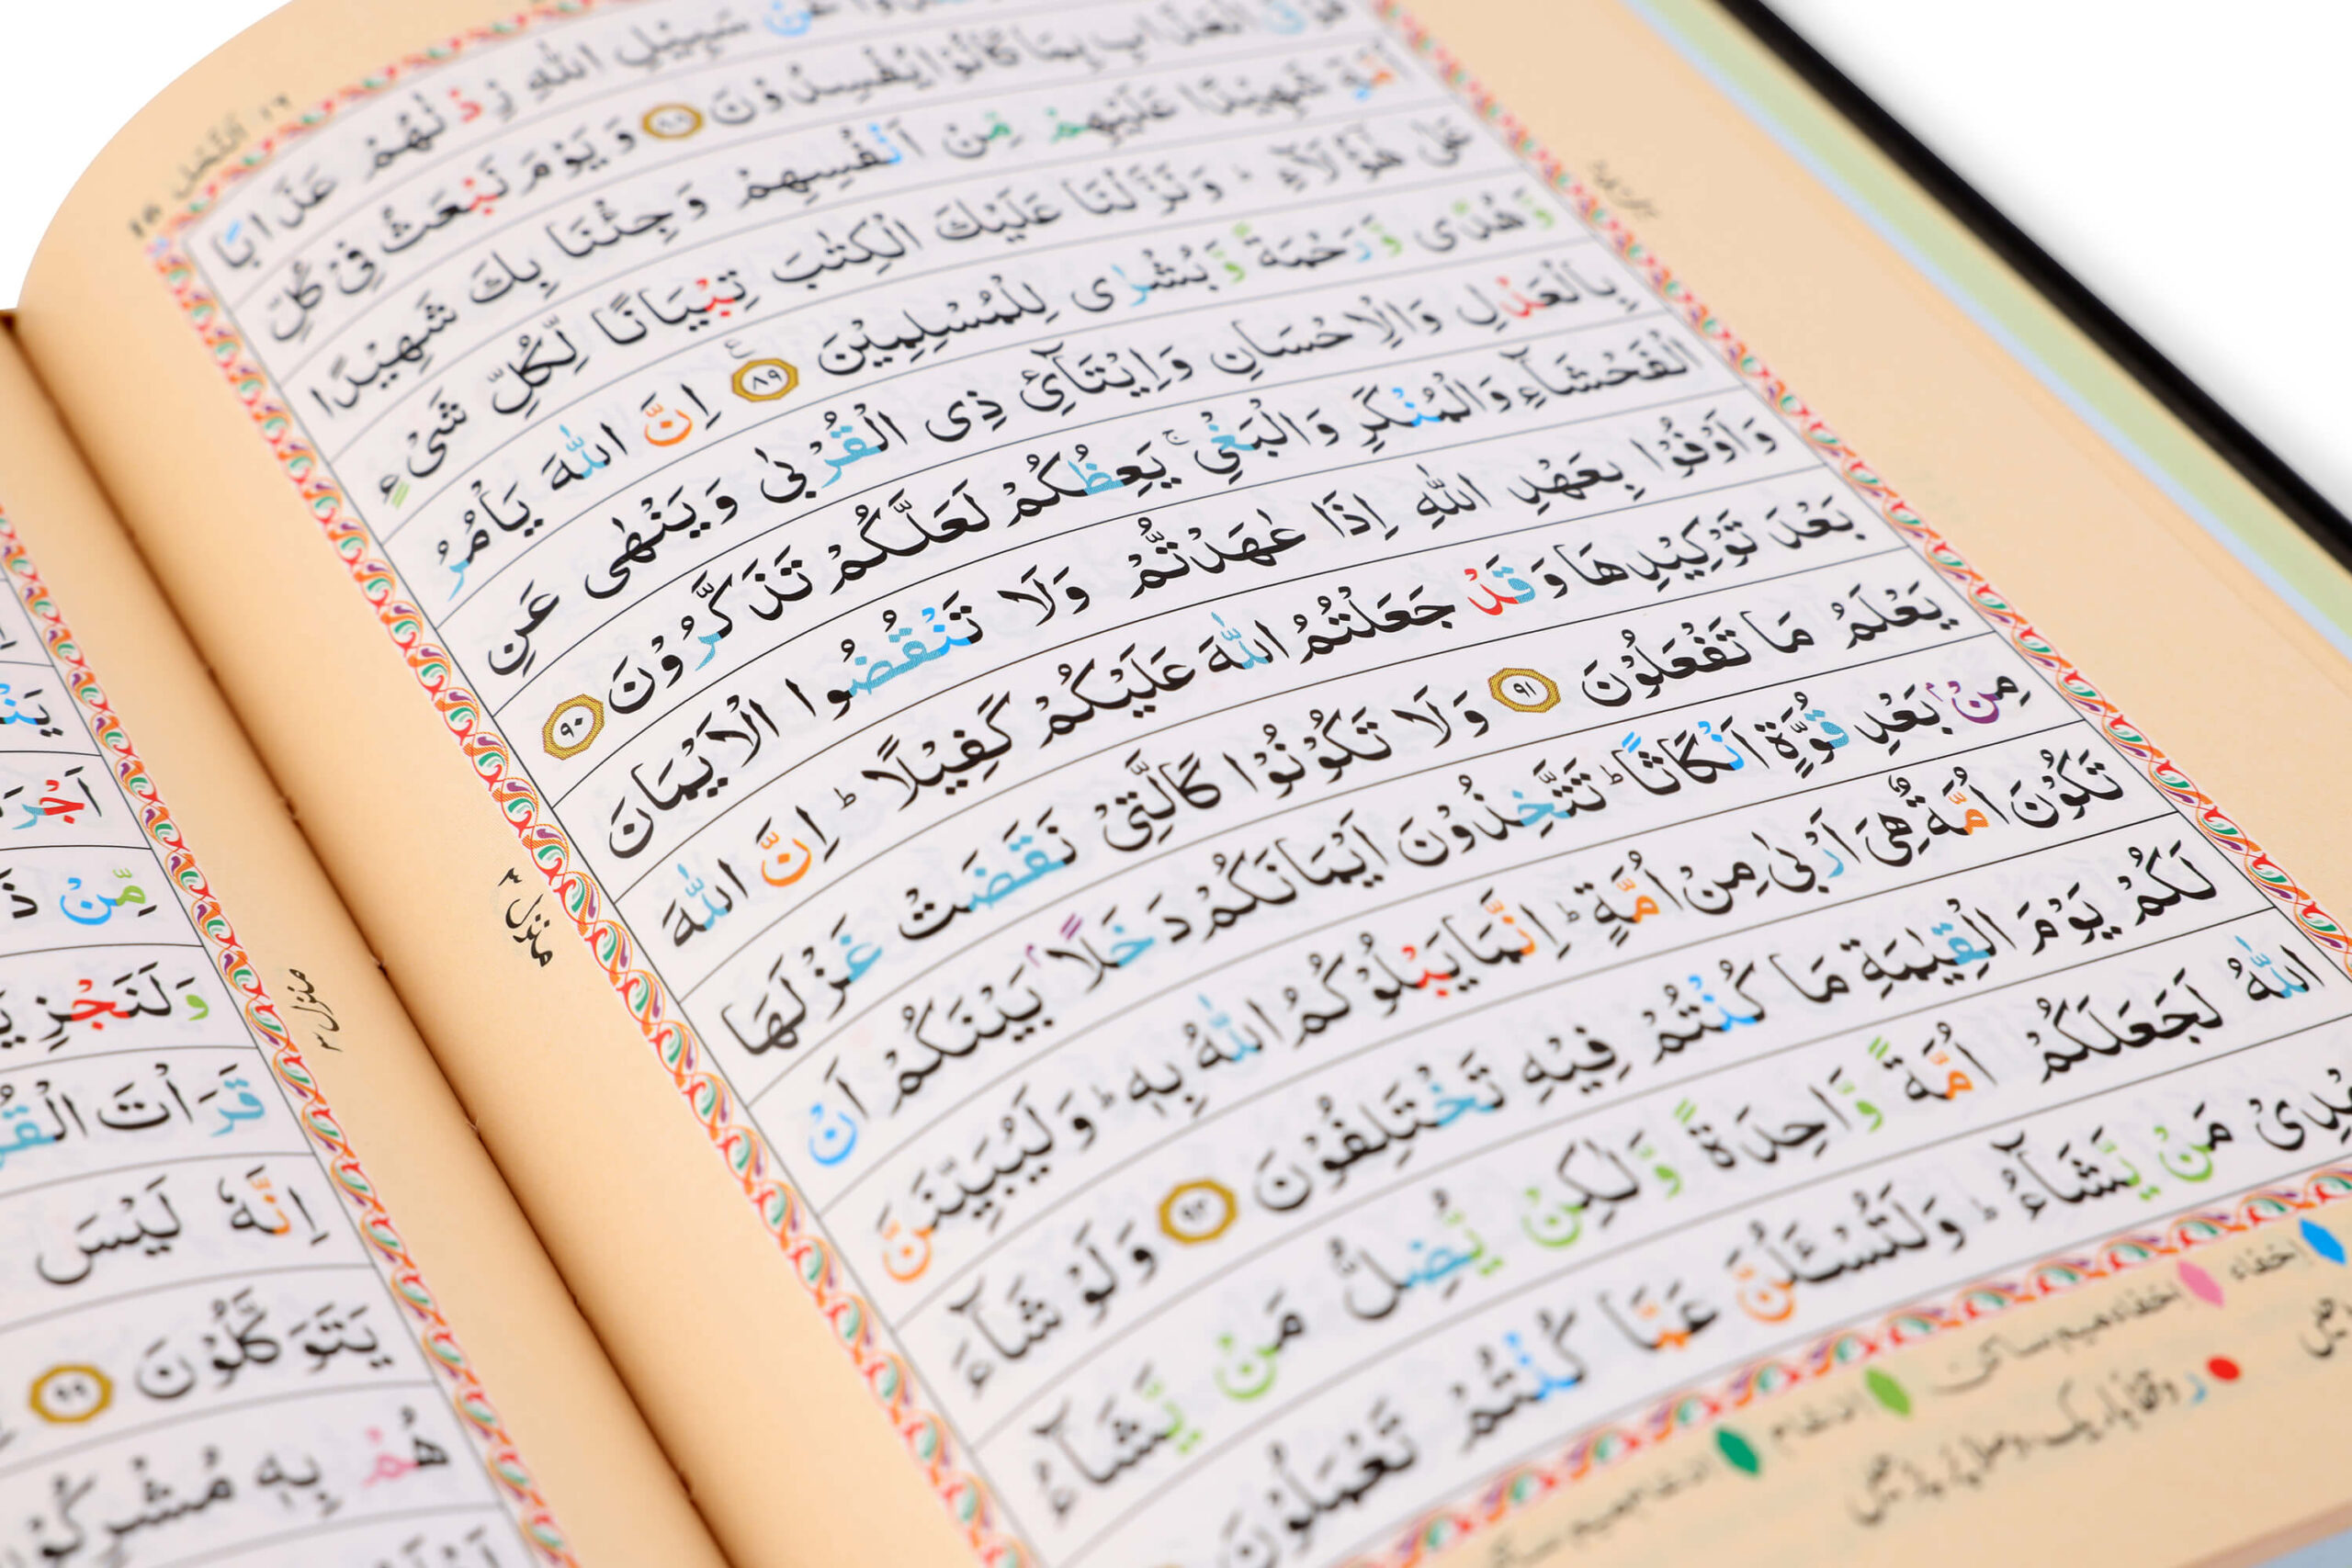 النحل ١٦
سَبِيْلِ اللّٰهِ زِدْنٰهُمْ عَذَابًا
الْعَذَابِ بِمَا كَانُوْا يُفْسِدُوْنَ ۝٨٨ وَيَوْمَ نَبْعَثُ فِىْ كُلِّ
اُمَّةٍ شَهِيْدًا عَلَيْهِمْ مِّنْ اَنْفُسِهِمْ وَجِئْنَا بِكَ شَهِيْدًا
عَلٰى هٰٓؤُلَآءِ ؕ وَنَزَّلْنَا عَلَيْكَ الْكِتٰبَ تِبْيَانًا لِّكُلِّ شَىْءٍ
وَّهُدًى وَّرَحْمَةً وَّبُشْرٰى لِلْمُسْلِمِيْنَ ۝٨٩ اِنَّ اللّٰهَ يَاْمُرُ
بِالْعَدْلِ وَالْاِحْسَانِ وَاِيْتَآئِ ذِى الْقُرْبٰى وَيَنْهٰى عَنِ
الْفَحْشَآءِ وَالْمُنْكَرِ وَالْبَغْىِ ۚ يَعِظُكُمْ لَعَلَّكُمْ تَذَكَّرُوْنَ ۝٩٠
وَاَوْفُوْا بِعَهْدِ اللّٰهِ اِذَا عٰهَدْتُّمْ وَلَا تَنْقُضُوا الْاَيْمَانَ
بَعْدَ تَوْكِيْدِهَا وَقَدْ جَعَلْتُمُ اللّٰهَ عَلَيْكُمْ كَفِيْلًا ؕ اِنَّ اللّٰهَ
يَعْلَمُ مَا تَفْعَلُوْنَ ۝٩١ وَلَا تَكُوْنُوْا كَالَّتِىْ نَقَضَتْ غَزْلَهَا
مِنْۢ بَعْدِ قُوَّةٍ اَنْكَاثًا ؕ تَتَّخِذُوْنَ اَيْمَانَكُمْ دَخَلًاۢ بَيْنَكُمْ اَنْ
تَكُوْنَ اُمَّةٌ هِىَ اَرْبٰى مِنْ اُمَّةٍ ؕ اِنَّمَا يَبْلُوْكُمُ اللّٰهُ بِهٖ ؕ وَلَيُبَيِّنَنَّ
لَكُمْ يَوْمَ الْقِيٰمَةِ مَا كُنْتُمْ فِيْهِ تَخْتَلِفُوْنَ ۝٩٢ وَلَوْ شَآءَ
اللّٰهُ لَجَعَلَكُمْ اُمَّةً وَّاحِدَةً وَّلٰكِنْ يُّضِلُّ مَنْ يَّشَآءُ
مَنْ يَّشَآءُ ؕ وَلَتُسْئَلُنَّ عَمَّا كُنْتُمْ تَعْمَلُوْنَ
منزل ٣
اخفاء
اخفاء میم ساکن
ادغام
منزل ٣
اَجْرَ
مِّنْ
وَلَنَجْزِ
قَرَاْتَ
اِنَّهٗ لَيْسَ
يَتَوَكَّلُوْنَ ۝٩٩
هُمْ بِهٖ